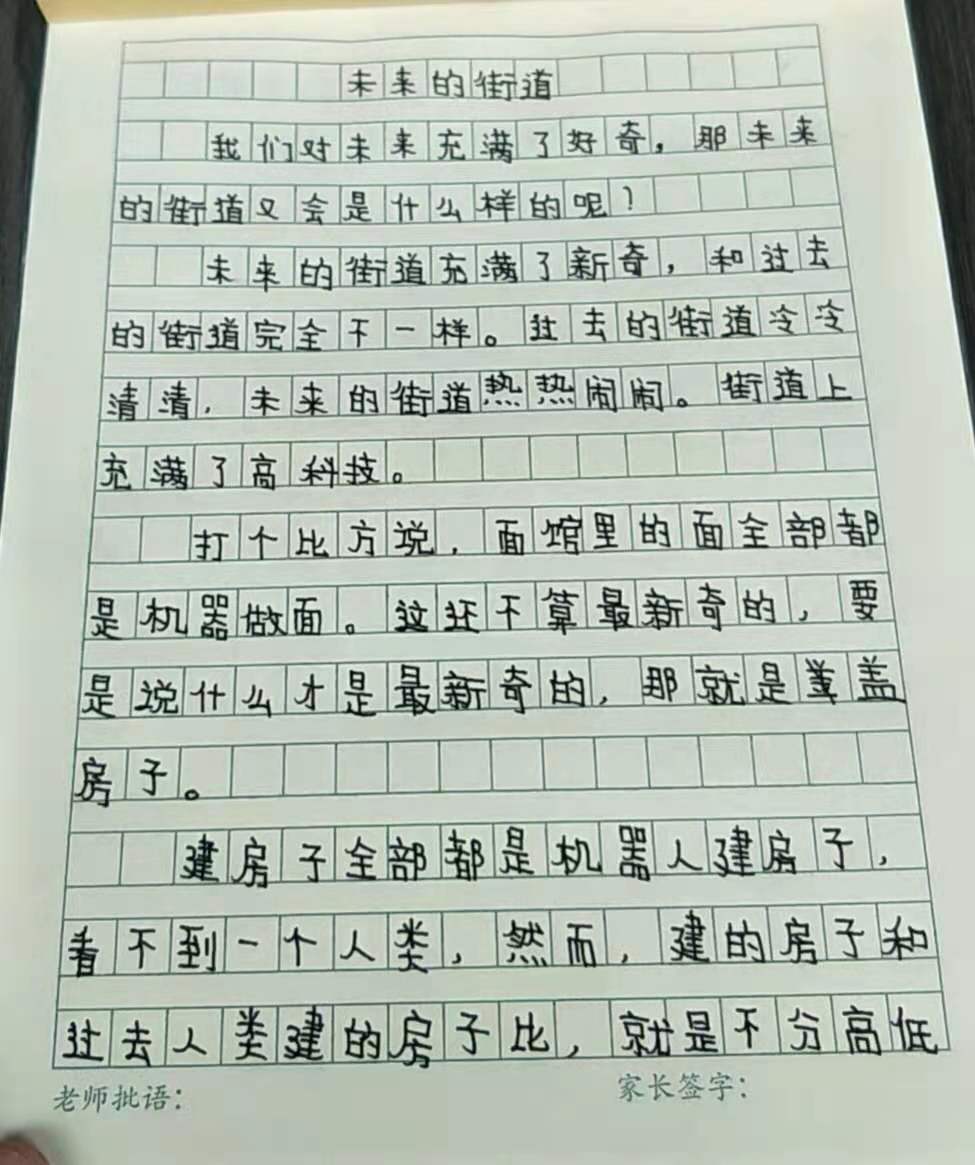 未来的街道
我们对未来充满了好奇，那未来
的街道又会是什么样的呢？
未来的街道充满了新奇，和过去
的街道完全不一样。过去的街道冷冷
清清，未来的街道热热闹闹。街道上
充满了高科技。
打个比方说，面馆里的面全部都
是机器做面。这还不算最新奇的，要
是说什么才是最新奇的，那就是盖
房子。
建房子全部都是机器人建房子，
看不到一个人类，然而，建的房子和
过去人类建的房子比，就是不分高低
老师批语：
家长签字：